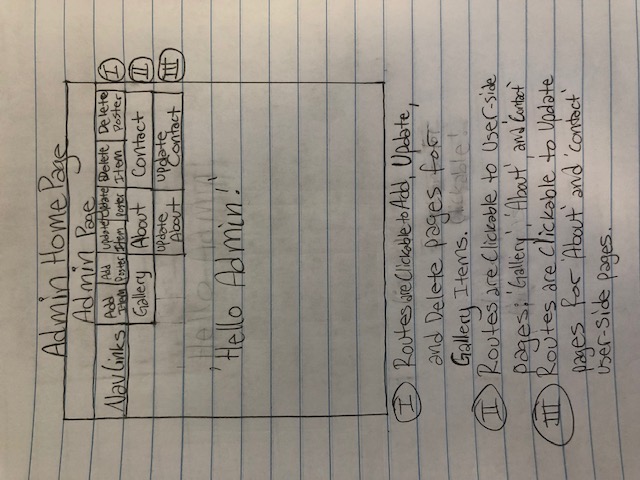 Admin Home Page
Admin Page
Nav Links
Add Item
Add Poster
Update Item
Update Poster
Delete Item
Delete Poster
I
Gallery
About
Contact
II
Update About
Update Contact
III
'Hello Admin!'
I Routes are Clickable to Add, Update,
and Delete pages for
Gallery Items. Clickable!
II Routes are Clickable to User-side
pages; 'Gallery', 'About' and 'Contact'
III Routes are Clickable to Update
pages for 'About' and 'contact'
user-side pages.